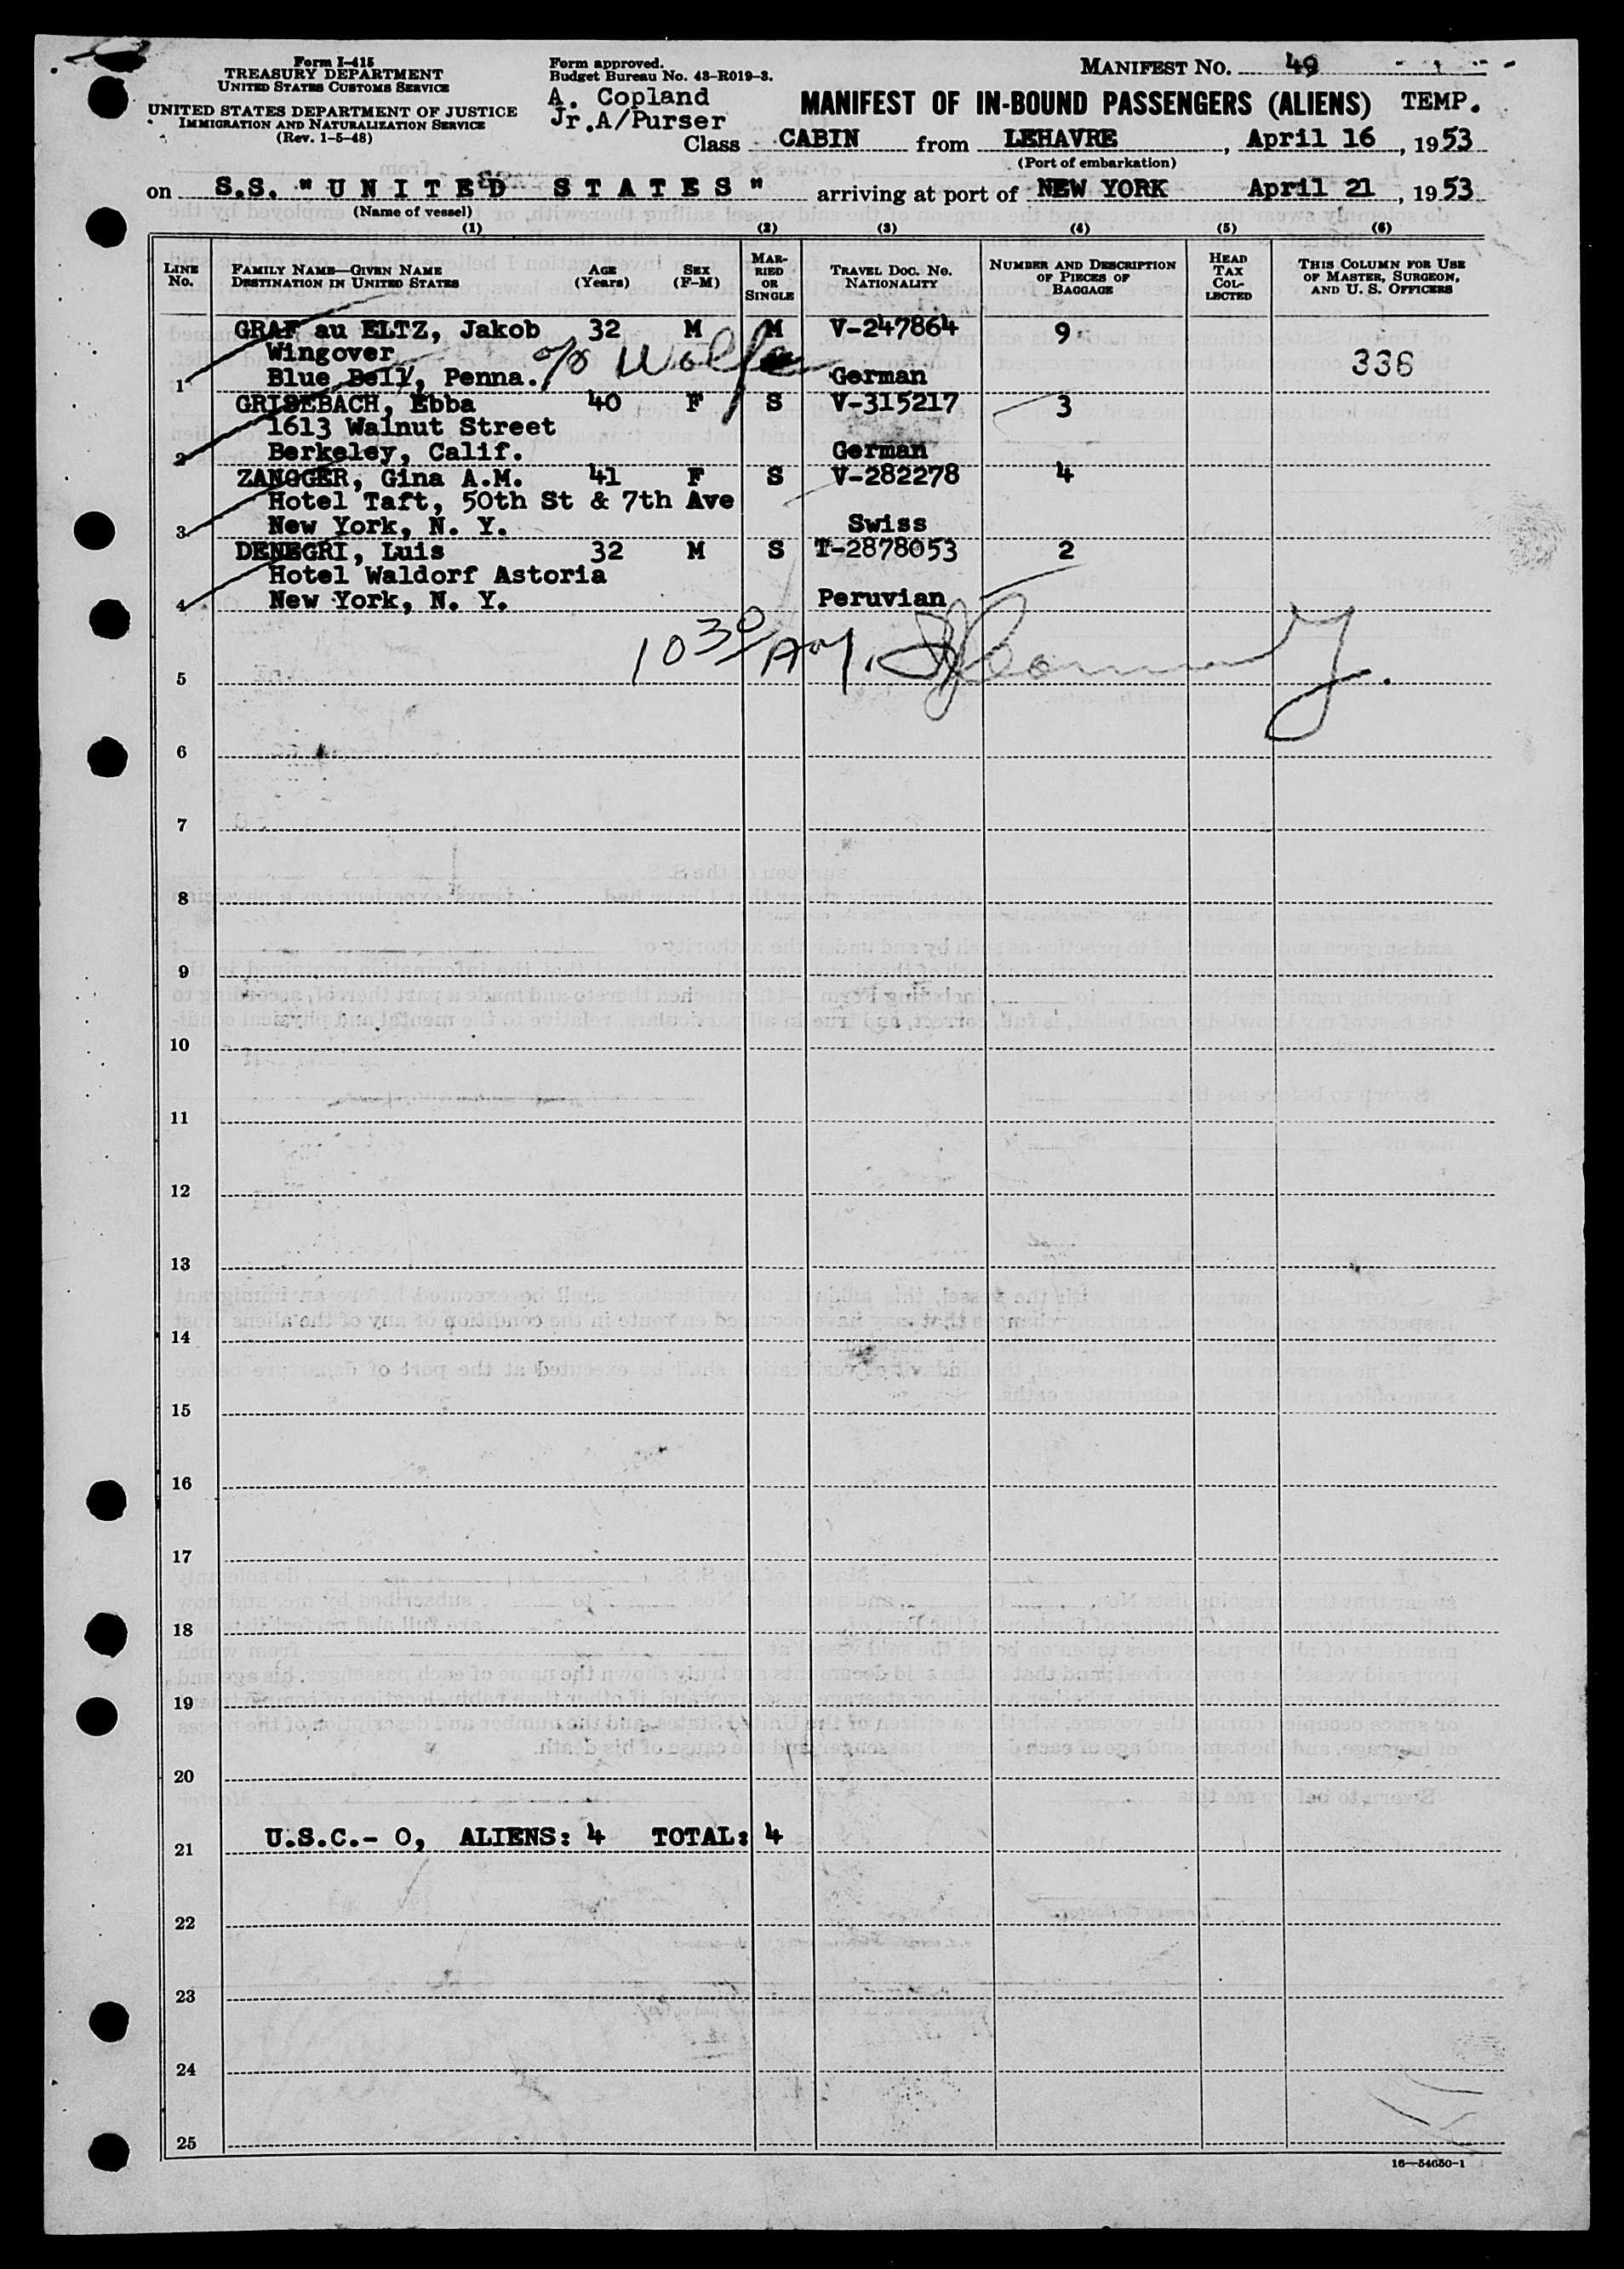 Form I-415
TREASURY DEPARTMENT
UNITED STATES CUSTOMS SERVICE
UNITED STATES DEPARTMENT OF JUSTICE
IMMIGRATION AND NATURALIZATION SERVICE
(Rev. 1-5-48)
Form approved.
Budget Bureau No. 43-R019-3.
A. Copland
Jr.A/Purser
MANIFEST NO. 49
MANIFEST OF IN-BOUND PASSENGERS (ALIENS) TEMP.
Class CABIN from LEHAVRE, April 16, 1953
(Port of embarkation)
on S.S. "UNITED STATES" arriving at port of NEW YORK April 21, 1953
(Name of vessel)
(1) (2) (3) (4) (5) (6)
LINE No.
FAMILY NAME—GIVEN NAME
DESTINATION IN UNITED STATES
AGE (Years)
SEX (F-M)
MARRIED OR SINGLE
TRAVEL DOC. NO.
NATIONALITY
NUMBER AND DESCRIPTION OF PIECES OF BAGGAGE
HEAD TAX COLLECTED
THIS COLUMN FOR USE OF MASTER, SURGEON, AND U. S. OFFICERS
GRAF au ELTZ, Jakob 32 M M V-247864 9
Wingover
336
1 Blue Bell, Penna. c/o Wolfe German
GRISEBACH, Ebba 40 F S V-315217 3
1613 Walnut Street
2 Berkeley, Calif. German
ZANGGER, Gina A.M. 41 F S V-282278 4
Hotel Taft, 50th St & 7th Ave
3 New York, N. Y. Swiss
DENEGRI, Luis 32 M S T-2878053 2
Hotel Waldorf Astoria
4 New York, N. Y. Peruvian
10 30 AM.
5
6
7
8
9
10
11
12
13
14
15
16
17
18
19
20
21 U.S.C.- 0, ALIENS: 4 TOTAL: 4
22
23
24
25
16—54650-1